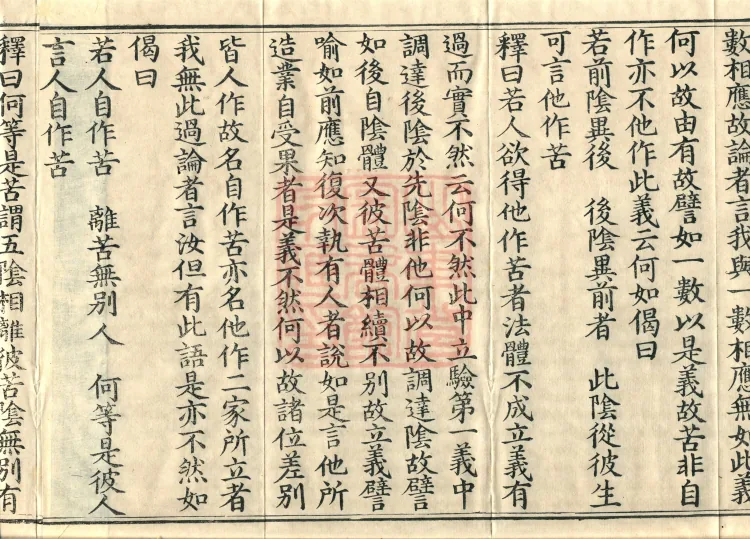 數相應故論者言我與一數相應無如此義
何以故由有故譬如一數以是義故苦非自
作亦不他作此義云何如偈曰
若前陰異後　後陰異前者　此陰從彼生
可言他作苦
釋曰若人欲得他作苦者法體不成立義有
過而實不然云何不然此中立驗第一義中
調達後陰於先陰非他何以故調達陰故譬
如後自陰體又彼苦體相續不別故立義譬
喻如前應知復次執有人者說如是言他所
造業自受果者是義不然何以故諸位差別
皆人作故名自作苦亦名他作二家所立者
我無此過論者言汝但有此語是亦不然如
偈曰
若人自作苦　離苦無別人　何等是彼人
言人自作苦
釋曰何等是苦謂五陰相離彼苦陰無別有